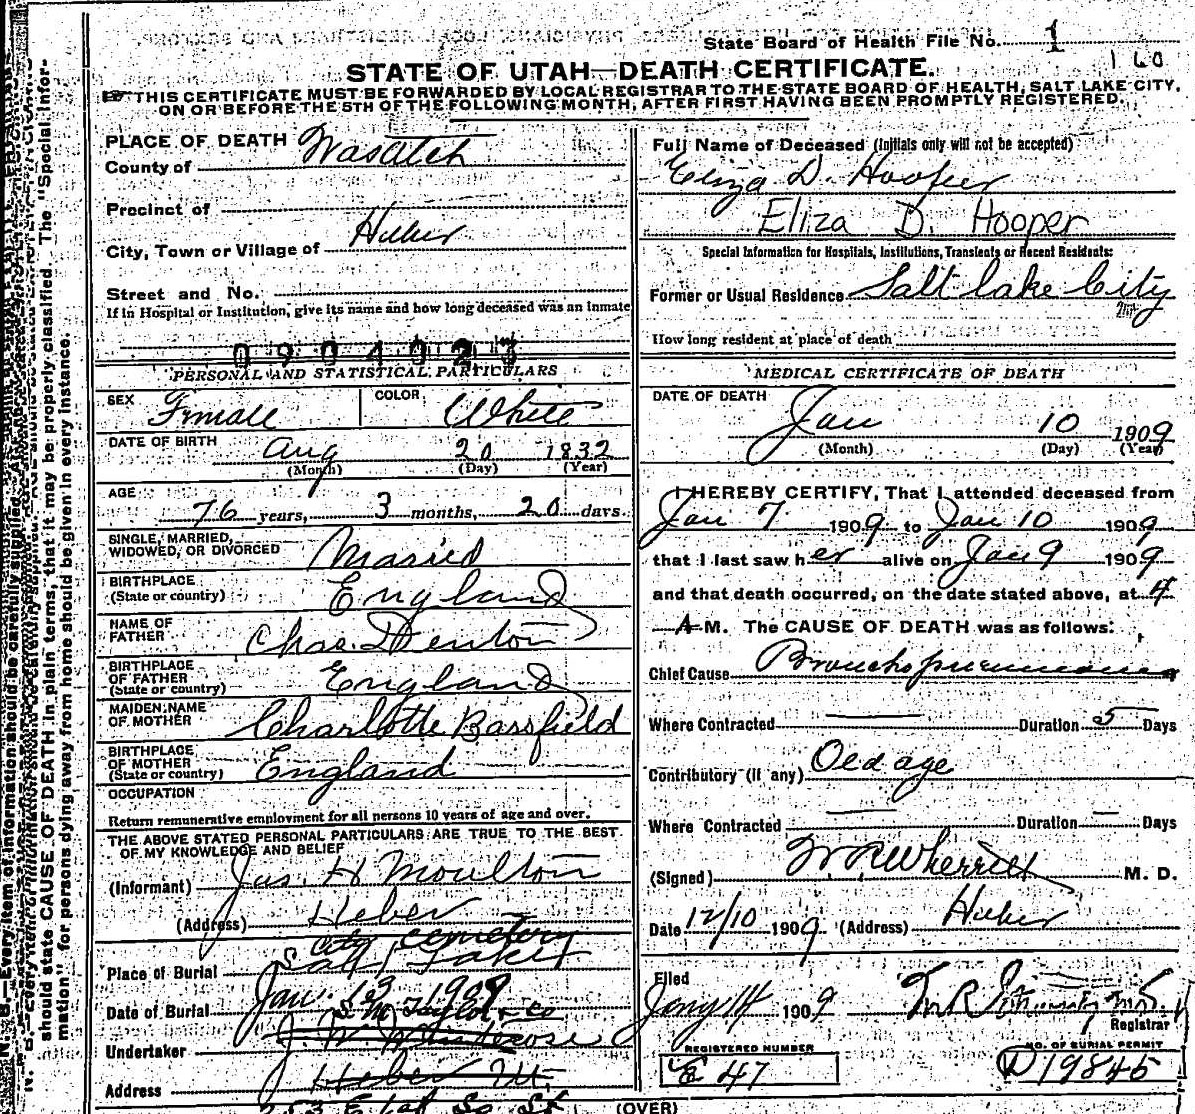 State Board of Health File No. 1
160
STATE OF UTAH—DEATH CERTIFICATE.
THIS CERTIFICATE MUST BE FORWARDED BY LOCAL REGISTRAR TO THE STATE BOARD OF HEALTH, SALT LAKE CITY,
ON OR BEFORE THE 5TH OF THE FOLLOWING MONTH, AFTER FIRST HAVING BEEN PROMPTLY REGISTERED.
PLACE OF DEATH
County of Wasatch
Precinct of
City, Town or Village of Heber
Street and No.
If in Hospital or Institution, give its name and how long deceased was an inmate
090402
PERSONAL AND STATISTICAL PARTICULARS
SEX Female COLOR White
DATE OF BIRTH Aug 20 1832
(Month) (Day) (Year)
AGE
76 years, 3 months, 20 days.
SINGLE, MARRIED,
WIDOWED, OR DIVORCED Married
BIRTHPLACE
(State or country) England
NAME OF
FATHER Chas. Denton
BIRTHPLACE
OF FATHER
(State or country) England
MAIDEN NAME
OF MOTHER Charlotte Bassfield
BIRTHPLACE
OF MOTHER
(State or country) England
OCCUPATION
Return remunerative employment for all persons 10 years of age and over.
THE ABOVE STATED PERSONAL PARTICULARS ARE TRUE TO THE BEST
OF MY KNOWLEDGE AND BELIEF
(Informant) Jas. H Moulton
(Address) Heber
City Cemetery
Place of Burial Salt Lake
Date of Burial Jan. 13 1909
S. M. Taylor & Co
Undertaker J. W.
Address Heber Ut.
253 E 1st So St
Full Name of Deceased (Initials only will not be accepted)
Eliza D. Hooper
Eliza D. Hooper
Special Information for Hospitals, Institutions, Transients or Recent Residents:
Former or Usual Residence Salt Lake City
How long resident at place of death
MEDICAL CERTIFICATE OF DEATH
DATE OF DEATH
Jan 10 1909
(Month) (Day) (Year)
I HEREBY CERTIFY, That I attended deceased from
Jan 7 1909 to Jan 10 1909
that I last saw her alive on Jan 9 1909
and that death occurred, on the date stated above, at 4
A M. The CAUSE OF DEATH was as follows:
Chief Cause Bronchopneumonia
Where Contracted — Duration 5 Days
Contributory (if any) Old age
Where Contracted — Duration — Days
(Signed) W. R. Wherritt M. D.
Date 12/10 1909 (Address) Heber
Filed
Jany 14 1909
Registrar
REGISTERED NUMBER
E 47
NO. OF BURIAL PERMIT
D19845
(OVER)
N. B.—Every item of information should be carefully supplied.
should state CAUSE OF DEATH in plain terms, that it may be properly classified. The "Special Infor-
mation" for persons dying away from home should be given in every instance.